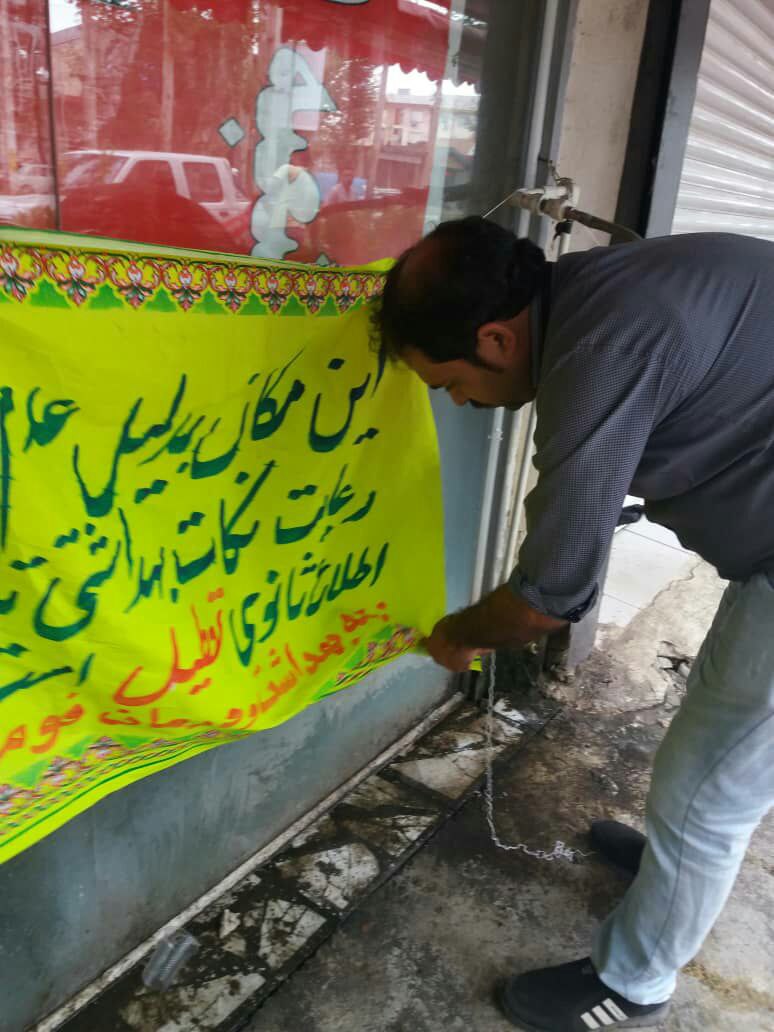 این مکان بدلیل عدم
رعایت نکات بهداشتی تا
اطلاع ثانوی تعطیل است
بهداشت و درمان فوم